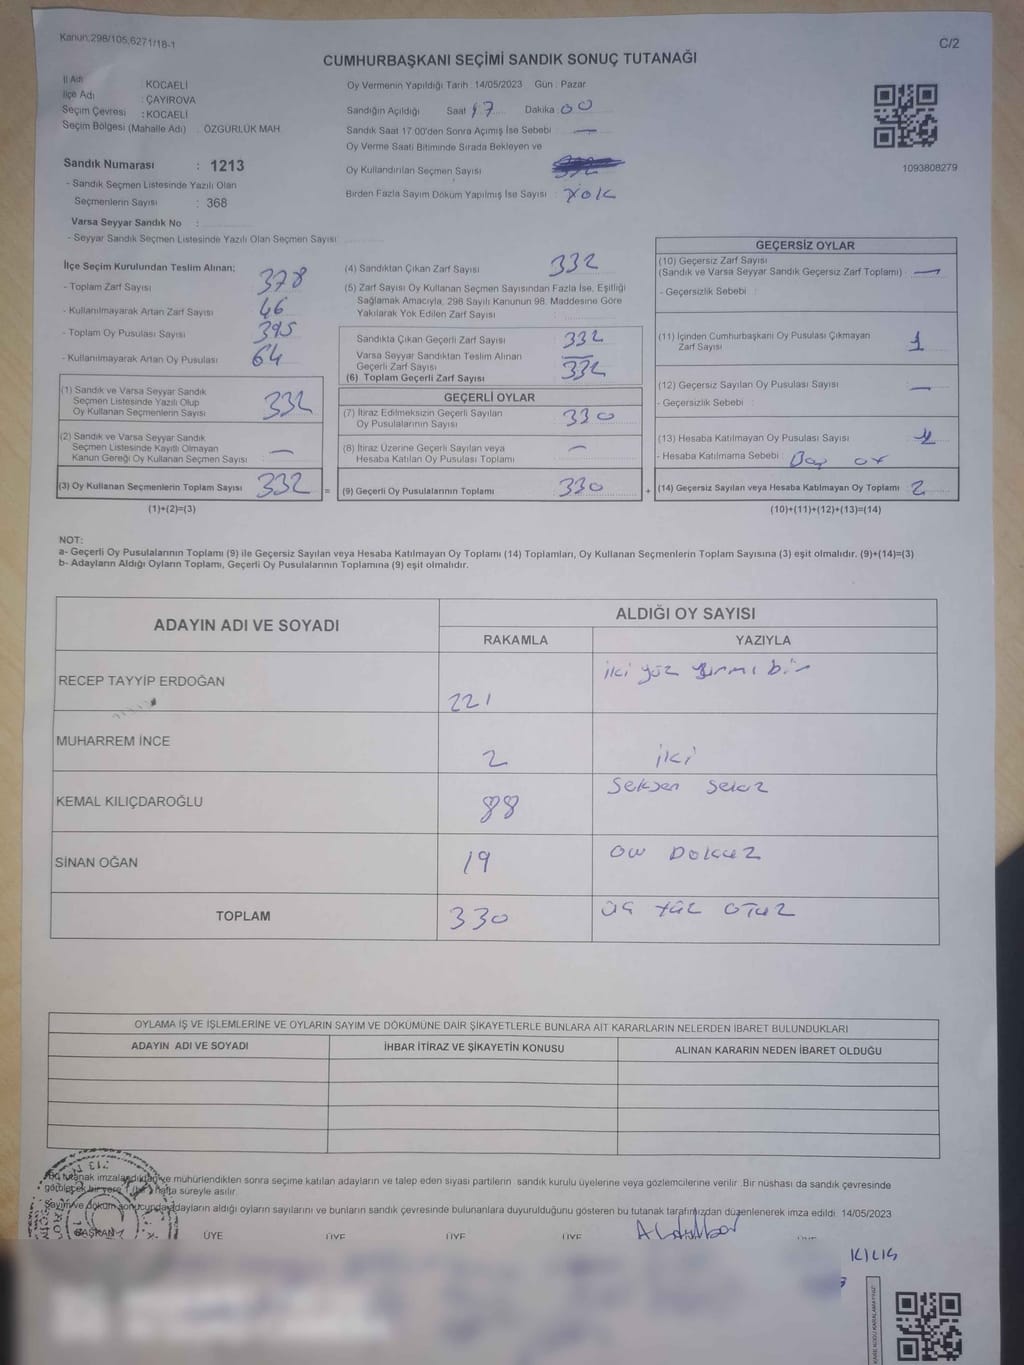 Kanun:298/105,6271/18-1
C/2
CUMHURBAŞKANI SEÇİMİ SANDIK SONUÇ TUTANAĞI
İl Adı : KOCAELİ
İlçe Adı : ÇAYIROVA
Seçim Çevresi : KOCAELİ
Seçim Bölgesi (Mahalle Adı) : ÖZGÜRLÜK MAH
Sandık Numarası : 1213
- Sandık Seçmen Listesinde Yazılı Olan
Seçmenlerin Sayısı : 368
Varsa Seyyar Sandık No :
- Seyyar Sandık Seçmen Listesinde Yazılı Olan Seçmen Sayısı:
Oy Vermenin Yapıldığı Tarih : 14/05/2023 Gün : Pazar
Sandığın Açıldığı Saat 17 Dakika : 00
Sandık Saat 17.00'den Sonra Açımış İse Sebebi : —
Oy Verme Saati Bitiminde Sırada Bekleyen ve
Oy Kullandırılan Seçmen Sayısı
Birden Fazla Sayım Döküm Yapılmış İse Sayısı : YOK
1093808279
İlçe Seçim Kurulundan Teslim Alınan;
- Toplam Zarf Sayısı 378
- Kullanılmayarak Artan Zarf Sayısı : 46
- Toplam Oy Pusulası Sayısı 395
- Kullanılmayarak Artan Oy Pusulası 64
(1) Sandık ve Varsa Seyyar Sandık
Seçmen Listesinde Yazılı Olup
Oy Kullanan Seçmenlerin Sayısı 332
(2) Sandık ve Varsa Seyyar Sandık
Seçmen Listesinde Kayıtlı Olmayan
Kanun Gereği Oy Kullanan Seçmen Sayısı —
(3) Oy Kullanan Seçmenlerin Toplam Sayısı 332
(1)+(2)=(3)
=
(4) Sandıktan Çıkan Zarf Sayısı 332
(5) Zarf Sayısı Oy Kullanan Seçmen Sayısından Fazla İse, Eşitliği
Sağlamak Amacıyla, 298 Sayılı Kanunun 98. Maddesine Göre
Yakılarak Yok Edilen Zarf Sayısı :
Sandıkta Çıkan Geçerli Zarf Sayısı 332
Varsa Seyyar Sandıktan Teslim Alınan
Geçerli Zarf Sayısı —
(6) Toplam Geçerli Zarf Sayısı 332
GEÇERLİ OYLAR
(7) İtiraz Edilmeksizin Geçerli Sayılan
Oy Pusulalarının Sayısı 330
(8) İtiraz Üzerine Geçerli Sayılan veya
Hesaba Katılan Oy Pusulası Toplamı —
(9) Geçerli Oy Pusulalarının Toplamı 330
+
GEÇERSİZ OYLAR
(10) Geçersiz Zarf Sayısı
(Sandık ve Varsa Seyyar Sandık Geçersiz Zarf Toplamı) —
- Geçersizlik Sebebi :
(11) İçinden Cumhurbaşkanı Oy Pusulası Çıkmayan
Zarf Sayısı 1
(12) Geçersiz Sayılan Oy Pusulası Sayısı —
- Geçersizlik Sebebi :
(13) Hesaba Katılmayan Oy Pusulası Sayısı 1
- Hesaba Katılmama Sebebi : Boş oy
(14) Geçersiz Sayılan veya Hesaba Katılmayan Oy Toplamı 2
(10)+(11)+(12)+(13)=(14)
NOT:
a- Geçerli Oy Pusulalarının Toplamı (9) ile Geçersiz Sayılan veya Hesaba Katılmayan Oy Toplamı (14) Toplamları, Oy Kullanan Seçmenlerin Toplam Sayısına (3) eşit olmalıdır. (9)+(14)=(3)
b- Adayların Aldığı Oyların Toplamı, Geçerli Oy Pusulalarının Toplamına (9) eşit olmalıdır.
ADAYIN ADI VE SOYADI
ALDIĞI OY SAYISI
RAKAMLA YAZIYLA
RECEP TAYYİP ERDOĞAN 221 iki yüz yirmi bir
MUHARREM İNCE 2 iki
KEMAL KILIÇDAROĞLU 88 Seksen sekiz
SİNAN OĞAN 19 ON DOKUZ
TOPLAM 330 ÜÇ YÜZ OTUZ
OYLAMA İŞ VE İŞLEMLERİNE VE OYLARIN SAYIM VE DÖKÜMÜNE DAİR ŞİKAYETLERLE BUNLARA AİT KARARLARIN NELERDEN İBARET BULUNDUKLARI
ADAYIN ADI VE SOYADI İHBAR İTİRAZ VE ŞİKAYETİN KONUSU ALINAN KARARIN NEDEN İBARET OLDUĞU
Bu tutanak imzalandıktan ve mühürlendikten sonra seçime katılan adayların ve talep eden siyasi partilerin sandık kurulu üyelerine veya gözlemcilerine verilir. Bir nüshası da sandık çevresinde
görülecek bir yere 1 (bir) hafta süreyle asılır.
Sayım ve döküm sonucunda adayların aldığı oyların sayılarını ve bunların sandık çevresinde bulunanlara duyurulduğunu gösteren bu tutanak tarafımızdan düzenlenerek imza edildi. 14/05/2023
BAŞKAN ÜYE ÜYE ÜYE ÜYE
KILIÇ